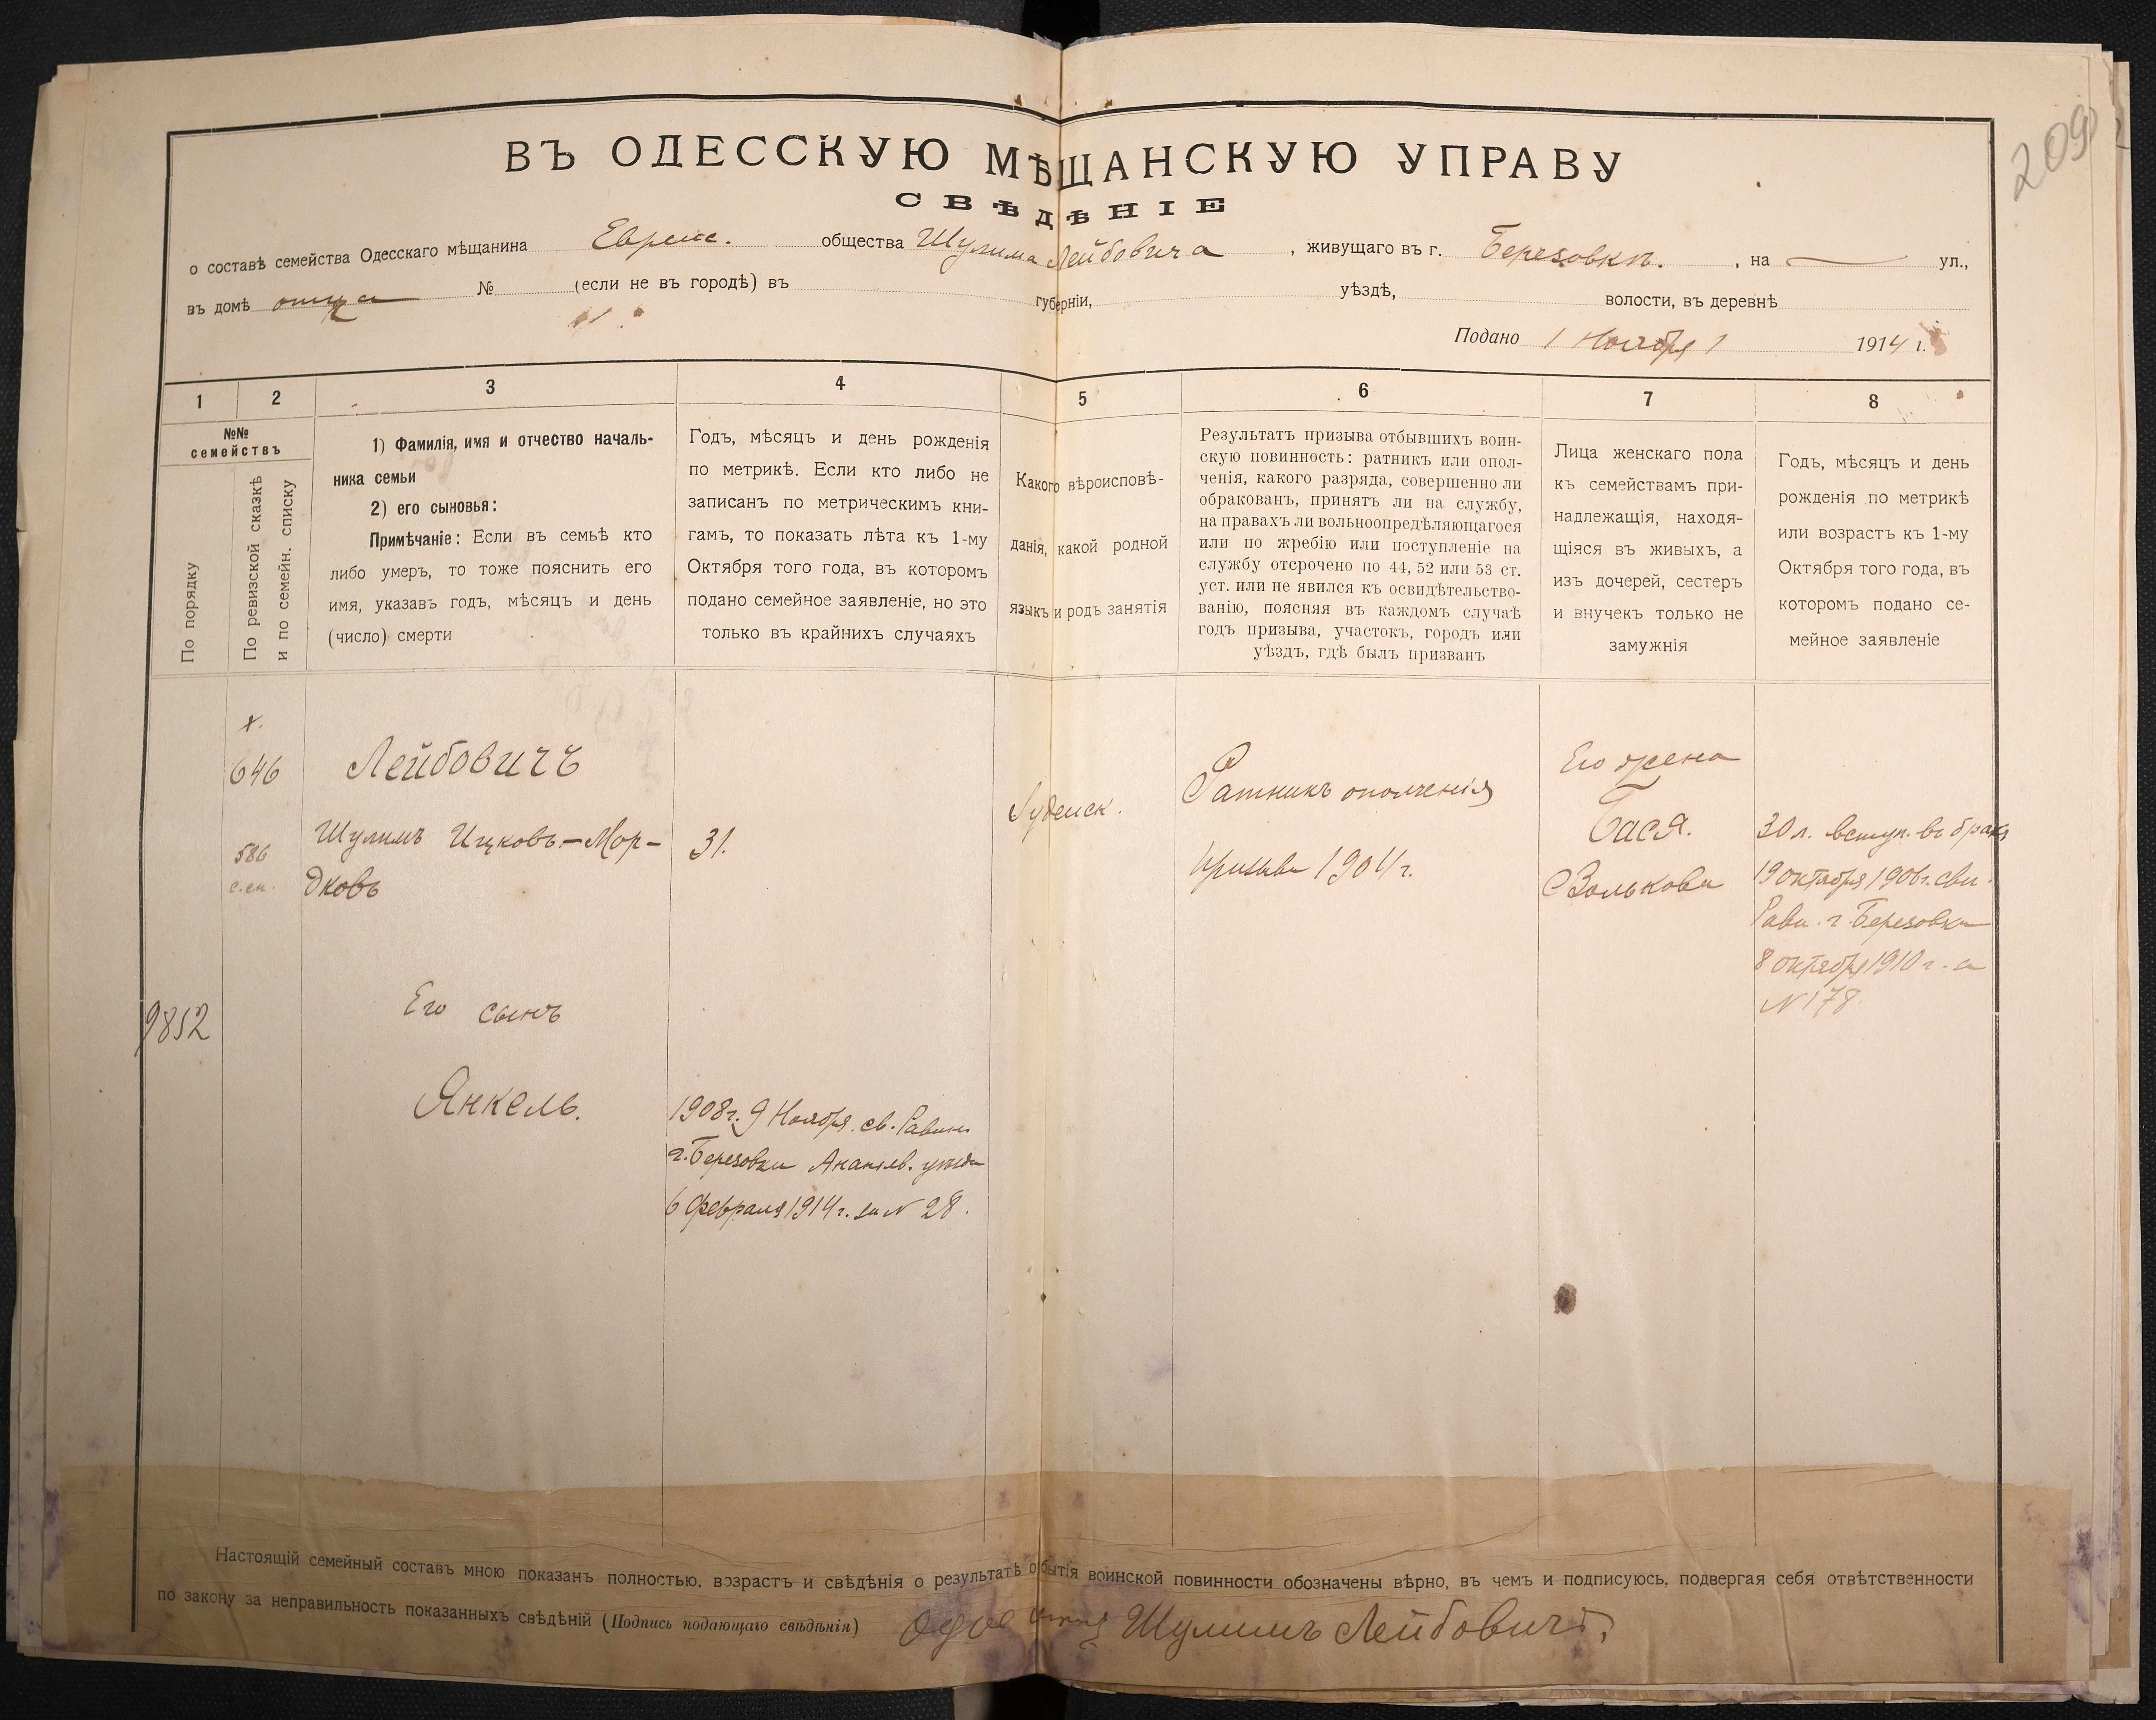 209
ВЪ ОДЕССКУЮ МѢЩАНСКУЮ УПРАВУ
СВѢДѢНІЕ
о составѣ семейства Одесскаго мѣщанина Евреис. общества Шулима Лейбовича, живущаго въ г. Березовкѣ., на ул.,
въ домѣ отца № (если не въ городѣ) въ губерніи, уѣздѣ, волости, въ деревнѣ
Подано 1 Ноября 1914 г.
1 2 3 4 5 6 7 8
№№
семействъ
По порядку
По ревизской сказкѣ
и по семейн. списку
1) Фамилія, имя и отчество началь-
ника семьи
2) его сыновья:
Примѣчаніе: Если въ семьѣ кто
либо умеръ, то тоже пояснить его
имя, указавъ годъ, мѣсяцъ и день
(число) смерти
Годъ, мѣсяцъ и день рожденія
по метрикѣ. Если кто либо не
записанъ по метрическимъ кни-
гамъ, то показать лѣта къ 1-му
Октября того года, въ которомъ
подано семейное заявленіе, но это
только въ крайнихъ случаяхъ
Какого вѣроисповѣ-
данія, какой родной
языкъ и родъ занятія
Результатъ призыва отбывшихъ воин-
скую повинность: ратникъ или опол-
ченія, какого разряда, совершенно ли
обракованъ, принятъ ли на службу,
на правахъ ли вольноопредѣляющагося
или по жребію или поступленіе на
службу отсрочено по 44, 52 или 53 ст.
уст. или не явился къ освидѣтельство-
ванію, поясняя въ каждомъ случаѣ
годъ призыва, участокъ, городъ или
уѣздъ, гдѣ былъ призванъ
Лица женскаго пола
къ семействамъ при-
надлежащія, находя-
щіяся въ живыхъ, а
изъ дочерей, сестеръ
и внучекъ только не
замужнія
Годъ, мѣсяцъ и день
рожденія по метрикѣ
или возрастъ къ 1-му
Октября того года, въ
которомъ подано се-
мейное заявленіе
х.
646
586
с.сп.
9852
Лейбовичъ
Шулимъ Ицковъ-Мор-
дковъ
Его сынъ
Янкель.
31.
1908г. 9 Ноября св. Равин
г. Березовки Ананьев. уѣзда
6 Февраля 1914г. за № 28.
Іудейск.
Ратникъ ополченія
призыва 1904 г.
Его жена
Бася.
Волькова
30 л. вступ. въ бракъ
19 октября 1906г. сви.
Рави. г. Березовки
8 октября 1910 г. за
№ 178.
Настоящій семейный составъ мною показанъ полностью, возрастъ и свѣдѣнія о результатѣ отбытія воинской повинности обозначены вѣрно, въ чемъ и подписуюсь, подвергая себя отвѣтственности
по закону за неправильность показанныхъ свѣдѣній (Подпись подающаго свѣдѣнія) Шулимъ Лейбовичъ